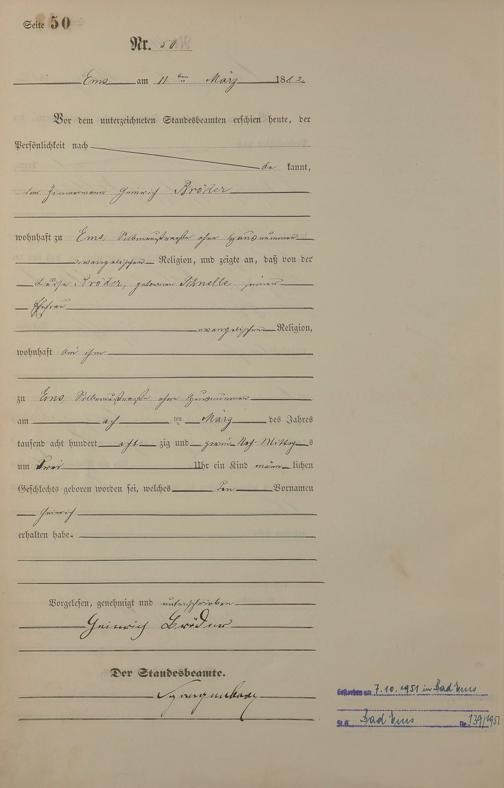 Seite 50
Nr. 50
Ems am 11 ten März 1882
Vor dem unterzeichneten Standesbeamten erschien heute, der
Persönlichkeit nach
be kannt,
der Zimmermann Heinrich Bröder
wohnhaft zu Ems, Silberaustraße ohne Hausnummer
evangelischer Religion, und zeigte an, daß von der
Bröder, geborenen Schnelle, seiner
Ehefrau
evangelischer Religion,
wohnhaft bei ihm
zu Ems Silberaustraße ohne Hausnummer
am ten März des Jahres
tausend acht hundert acht zig und zwei Nach Mittag s
um drei Uhr ein Kind männ lichen
Geschlechts geboren worden sei, welches den Vornamen
Heinrich
erhalten habe.
Vorgelesen, genehmigt und unterschrieben
Heinrich Bröder
Der Standesbeamte.
Gestorben am 7.10.1951 in Bad Ems
St.A. Bad Ems Nr. 139/1951